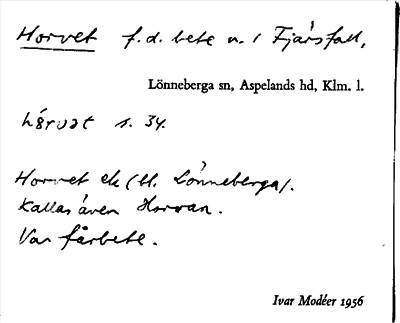 Horvet f.d. bete u. / Fjärsfall,
Lönneberga sn, Aspelands hd, Klm. l.
s. 34.
Horvet ek (bl. Lönneberga).
Kallas även Horvan.
Var fårbete.
Ivar Modéer 1956